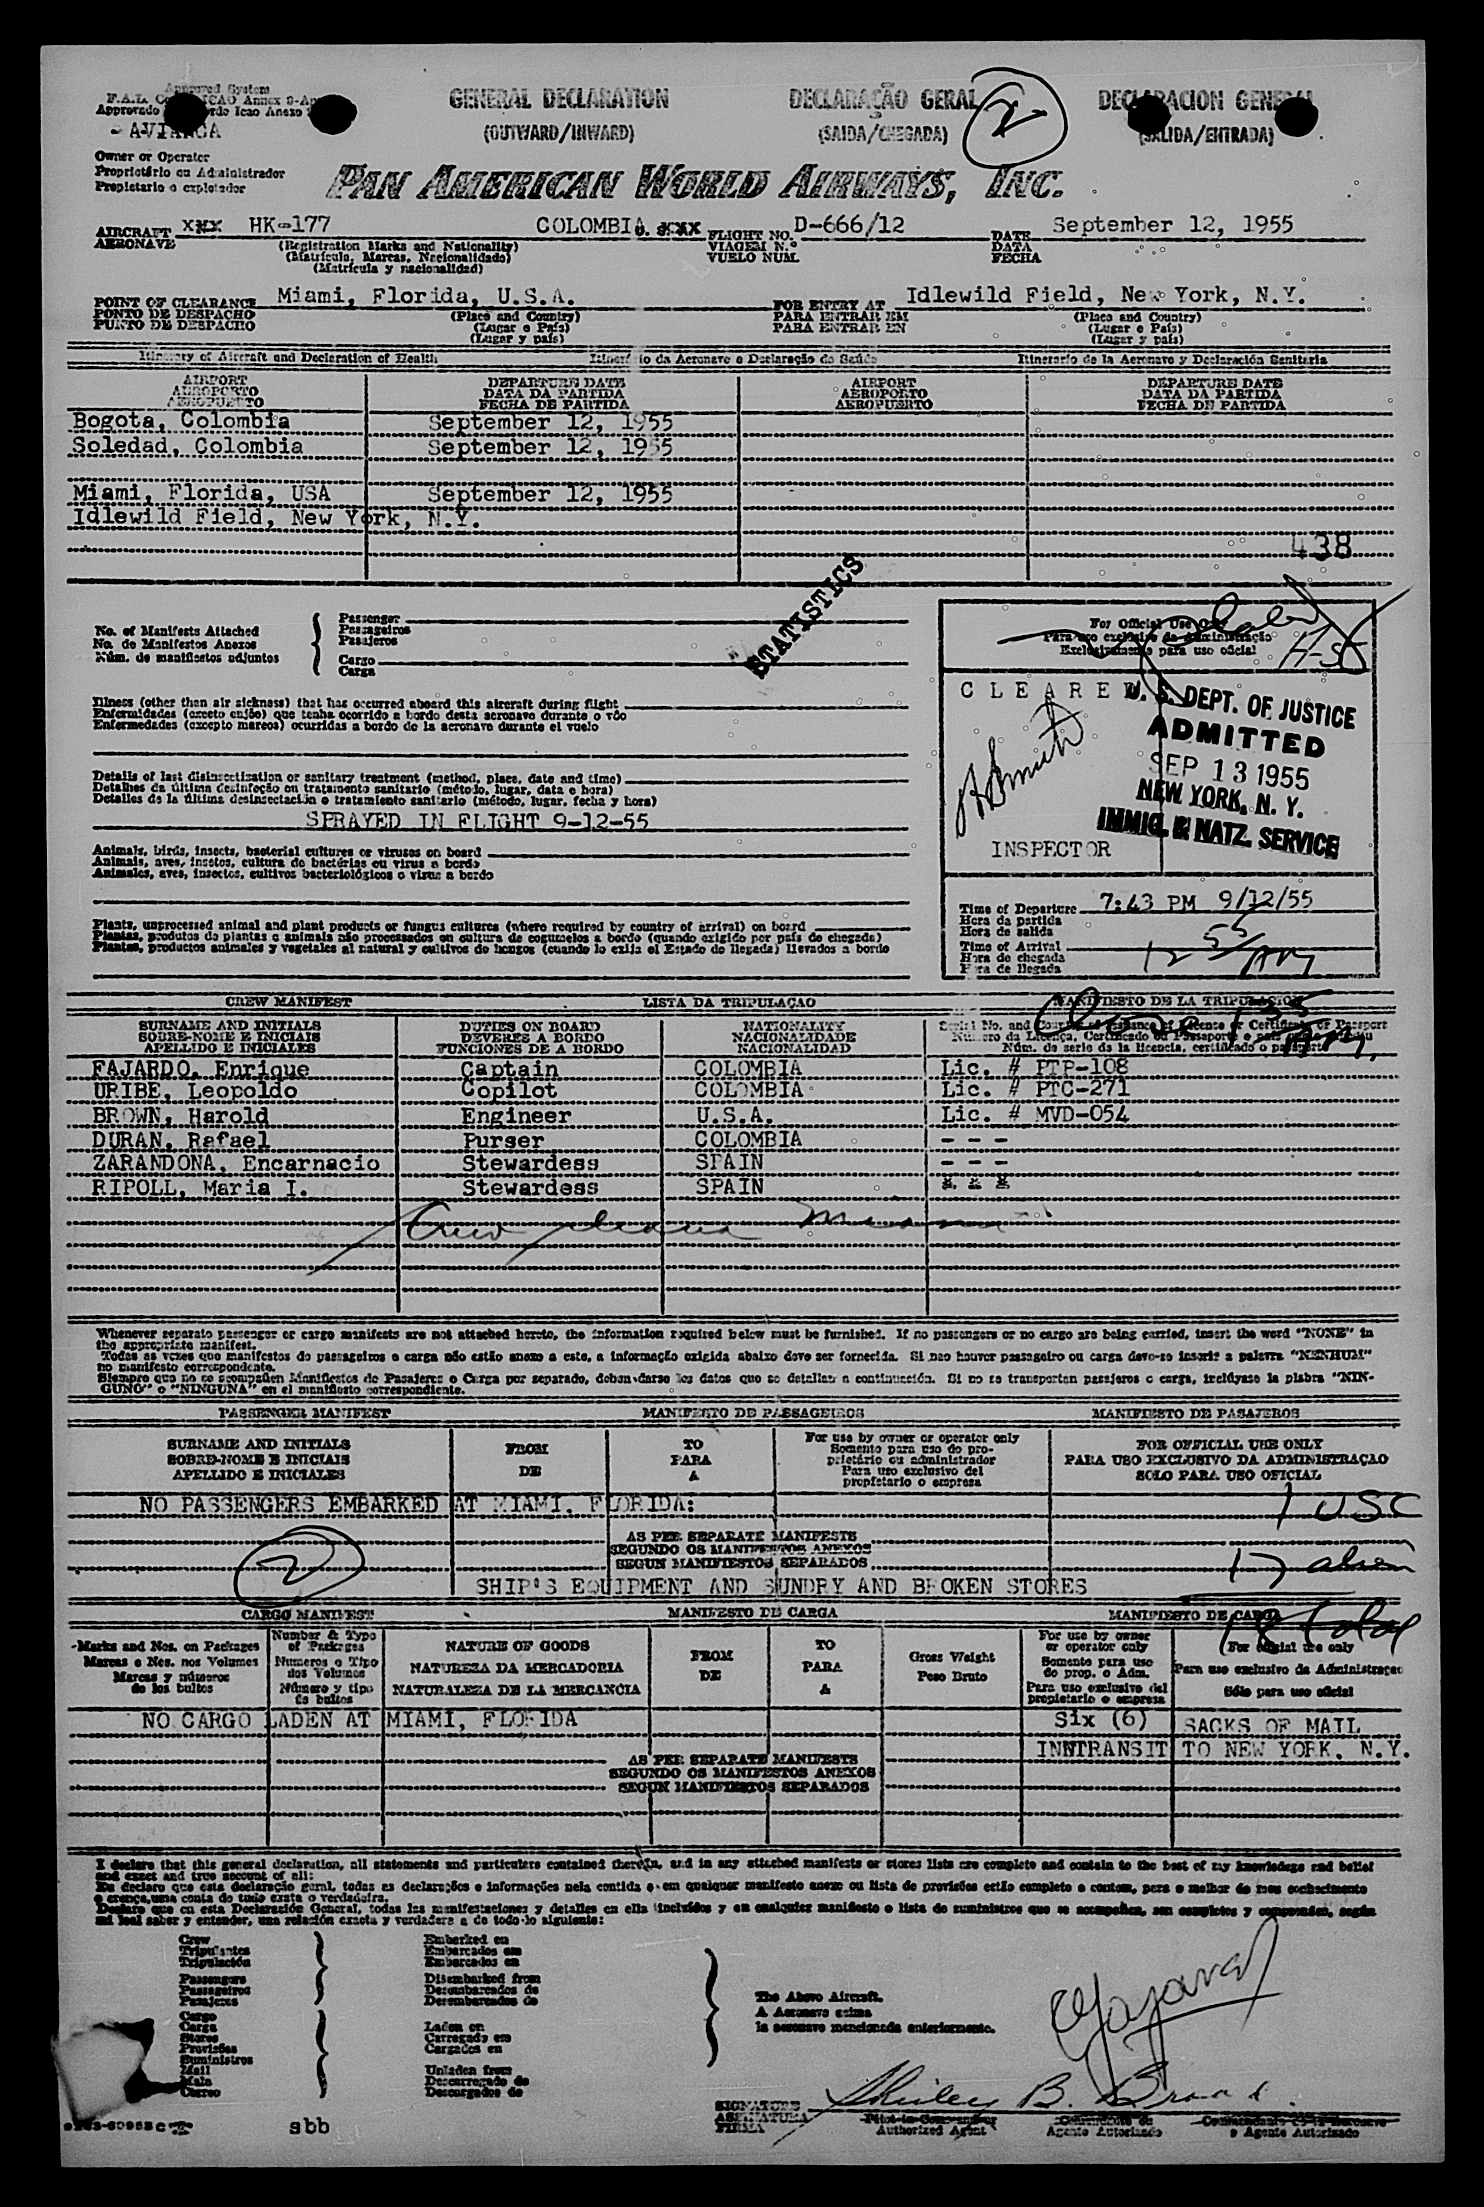 Approved System
AVIANCA
GENERAL DECLARATION
(OUTWARD/INWARD)
DECLARAÇÃO GERAL
(SAIDA/CHEGADA)
2
DECLARACION GENERAL
(SALIDA/ENTRADA)
Owner or Operator
Proprietário ou Administrador
Propietario o explotador
PAN AMERICAN WORLD AIRWAYS, INC.
AIRCRAFT HK-177 COLOMBIA FLIGHT NO. D-666/12 DATE September 12, 1955
AERONAVE (Registration Marks and Nationality) VIAGEM N.º DATA
(Matrícula, Marcas, Nacionalidade) VUELO NUM. FECHA
(Matrícula y nacionalidad)
POINT OF CLEARANCE Miami, Florida, U.S.A. FOR ENTRY AT Idlewild Field, New York, N.Y.
PONTO DE DESPACHO (Place and Country) PARA ENTRAR EM (Place and Country)
PUNTO DE DESPACHO (Lugar e País) PARA ENTRAR EN (Lugar e País)
(Lugar y país) (Lugar y país)
Itinerary of Aircraft and Declaration of Health Itinerário da Aeronave e Declaração de Saúde Itinerario de la Aeronave y Declaración Sanitaria
AIRPORT DEPARTURE DATE AIRPORT DEPARTURE DATE
AEROPORTO DATA DA PARTIDA AEROPORTO DATA DA PARTIDA
AEROPUERTO FECHA DE PARTIDA AEROPUERTO FECHA DE PARTIDA
Bogota, Colombia September 12, 1955
Soledad, Colombia September 12, 1955
Miami, Florida, USA September 12, 1955
Idlewild Field, New York, N.Y.
438
STATISTICS
No. of Manifests Attached
No. de Manifestos Anexos
Núm. de manifiestos adjuntos
Passenger
Passageiros
Pasajeros
Cargo
Carga
For Official Use Only
Para uso exclusivo da Administração
Exclusivamente para uso oficial
Illness (other than air sickness) that has occurred aboard this aircraft during flight
Enfermidades (exceto enjôo) que tenha ocorrido a bordo desta aeronave durante o vôo
Enfermedades (excepto mareos) ocurridas a bordo de la aeronave durante el vuelo
CLEARED
U. S. DEPT. OF JUSTICE
ADMITTED
SEP 13 1955
NEW YORK, N. Y.
IMMIG. & NATZ. SERVICE
INSPECTOR
Details of last disinsectization or sanitary treatment (method, place, date and time)
Detalhes da última desinfeção ou tratamento sanitario (método, lugar, data e hora)
Detalles de la última desinsectación o tratamiento sanitario (método, lugar, fecha y hora)
SPRAYED IN FLIGHT 9-12-55
Animals, birds, insects, bacterial cultures or viruses on board
Animais, aves, insetos, cultura de bactérias ou virus a bordo
Animales, aves, insectos, cultivos bacteriológicos o virus a bordo
Plants, unprocessed animal and plant products or fungus cultures (where required by country of arrival) on board
Plantas, produtos de plantas e animais não processados ou cultura de cogumelos a bordo (quando exigido por país de chegada)
Plantas, productos animales y vegetales al natural y cultivos de hongos (cuando lo exija el Estado de llegada) llevados a bordo
Time of Departure 7:43 PM 9/12/55
Hora da partida
Hora de salida
Time of Arrival 12 55 AM
Hora de chegada
Hora de llegada
CREW MANIFEST LISTA DA TRIPULAÇAO MANIFIESTO DE LA TRIPULACION
SURNAME AND INITIALS DUTIES ON BOARD NATIONALITY
SOBRE-NOME E INICIAIS DEVERES A BORDO NACIONALIDADE
APELLIDO E INICIALES FUNCIONES DE A BORDO NACIONALIDAD Núm. de serie de la licencia, certificado o pasaporte
FAJARDO, Enrique Captain COLOMBIA Lic. # PTP-108
URIBE, Leopoldo Copilot COLOMBIA Lic. # PTC-271
BROWN, Harold Engineer U.S.A. Lic. # MVD-054
DURAN, Rafael Purser COLOMBIA - - -
ZARANDONA, Encarnacio Stewardess SPAIN - - -
RIPOLL, Maria I. Stewardess SPAIN
Crew Miami
Whenever separate passenger or cargo manifests are not attached hereto, the information required below must be furnished. If no passengers or no cargo are being carried, insert the word "NONE" in
the appropriate manifest.
Todas as vezes que manifestos de passageiros e carga não estão anexo a este, a informação exigida abaixo deve ser fornecida. Si nao houver passageiro ou carga deve-se inserir a palavra "NENHUM"
no manifesto correspondente.
Siempre que no se acompañen Manifiestos de Pasajeros o Carga por separado, deben darse los datos que se detallan a continuación. Si no se transportan pasajeros o carga, inclúyase la plabra "NIN-
GUNO" o "NINGUNA" en el manifiesto correspondiente.
PASSENGER MANIFEST MANIFESTO DE PASSAGEIROS MANIFIESTO DE PASAJEROS
SURNAME AND INITIALS FROM TO For use by owner or operator only FOR OFFICIAL USE ONLY
SOBRE-NOME E INICIAIS DE PARA Somento para uso do pro- PARA USO EXCLUSIVO DA ADMINISTRAÇAO
APELLIDO E INICIALES A prietário ou administrador SOLO PARA USO OFICIAL
Para uso exclusivo del
propietario o empresa
NO PASSENGERS EMBARKED AT MIAMI, FLORIDA:
1 USC
AS PER SEPARATE MANIFESTS
SEGUNDO OS MANIFESTOS ANEXOS
SEGUN MANIFIESTOS SEPARADOS
2
17 alien
SHIP'S EQUIPMENT AND SUNDRY AND BROKEN STORES
18 total
CARGO MANIFEST MANIFESTO DE CARGA MANIFIESTO DE CARGA
Marks and Nos. on Packages Number & Type of Packages NATURE OF GOODS FROM TO Gross Weight For use by owner or operator only For official use only
Marcas e Nos. nos Volumes Numeros e Tipo dos Volumes NATUREZA DA MERCADORIA DE PARA Peso Bruto Somento para uso do prop. o Adm. Para uso exclusivo da Administraçao
Marcas y números de los bultos Número y tipo de bultos NATURALEZA DE LA MERCANCIA A Para uso exclusivo del propietario o empresa Sólo para uso oficial
NO CARGO LADEN AT MIAMI, FLORIDA Six (6) SACKS OF MAIL
INNTRANSIT TO NEW YORK, N.Y.
AS PER SEPARATE MANIFESTS
SEGUNDO OS MANIFESTOS ANEXOS
SEGUN MANIFIESTOS SEPARADOS
I declare that this general declaration, all statements and particulars contained therein, and in any attached manifests or stores lists are complete and contain to the best of my knowledge and belief
and exact and true account of all:
Eu declaro que esta declaração geral, todas as declarações e informações nela contida e em qualquer manifesto anexo ou lista de provisões estão completo e contem, para o melhor de meu conhecimento
e crença, uma conta de tudo exata e verdadeira.
Declaro que en esta Declaración General, todas las manifestaciones y detalles en ella incluídos y en cualquier manifiesto o lista de suministros que se acompañen, son completos y comprenden, según
mi leal saber y entender, una relación exacta y verdadera a de todo lo siguiente:
Crew Embarked on
Tripulantes Embarcados em
Tripulación Embarcados en
Passengers Disembarked from
Passageiros Desembarcados de
Pasajeros Desembarcados de
The Above Aircraft.
A Aeronave acima
la aeronave mencionada anteriormente.
Cargo
Carga Laden on
Stores Carregado em
Provisões Cargados en
Suministros
Mail Unladen from
Mala Descarregado de
Correo Descargados de
Shirley B.
SIGNATURE
ASSINATURA
FIRMA
Authorized Agent
Agente Autorizado
o Agente Autorizado
sbb